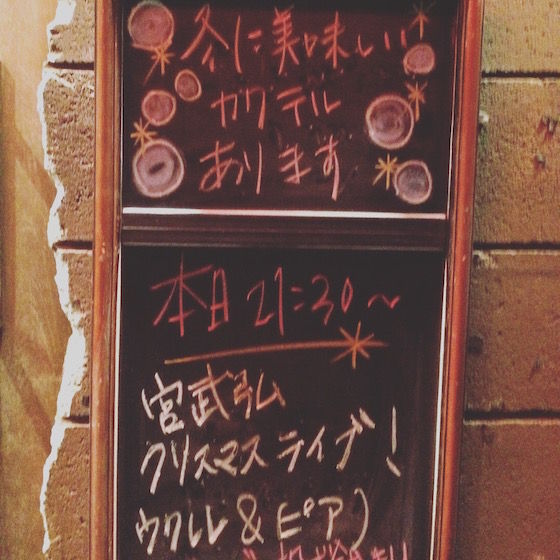 冬に美味しい
カクテル
あります
本日 21:30〜
宮武弘
クリスマスライブ!
ウクレレ&ピアノ